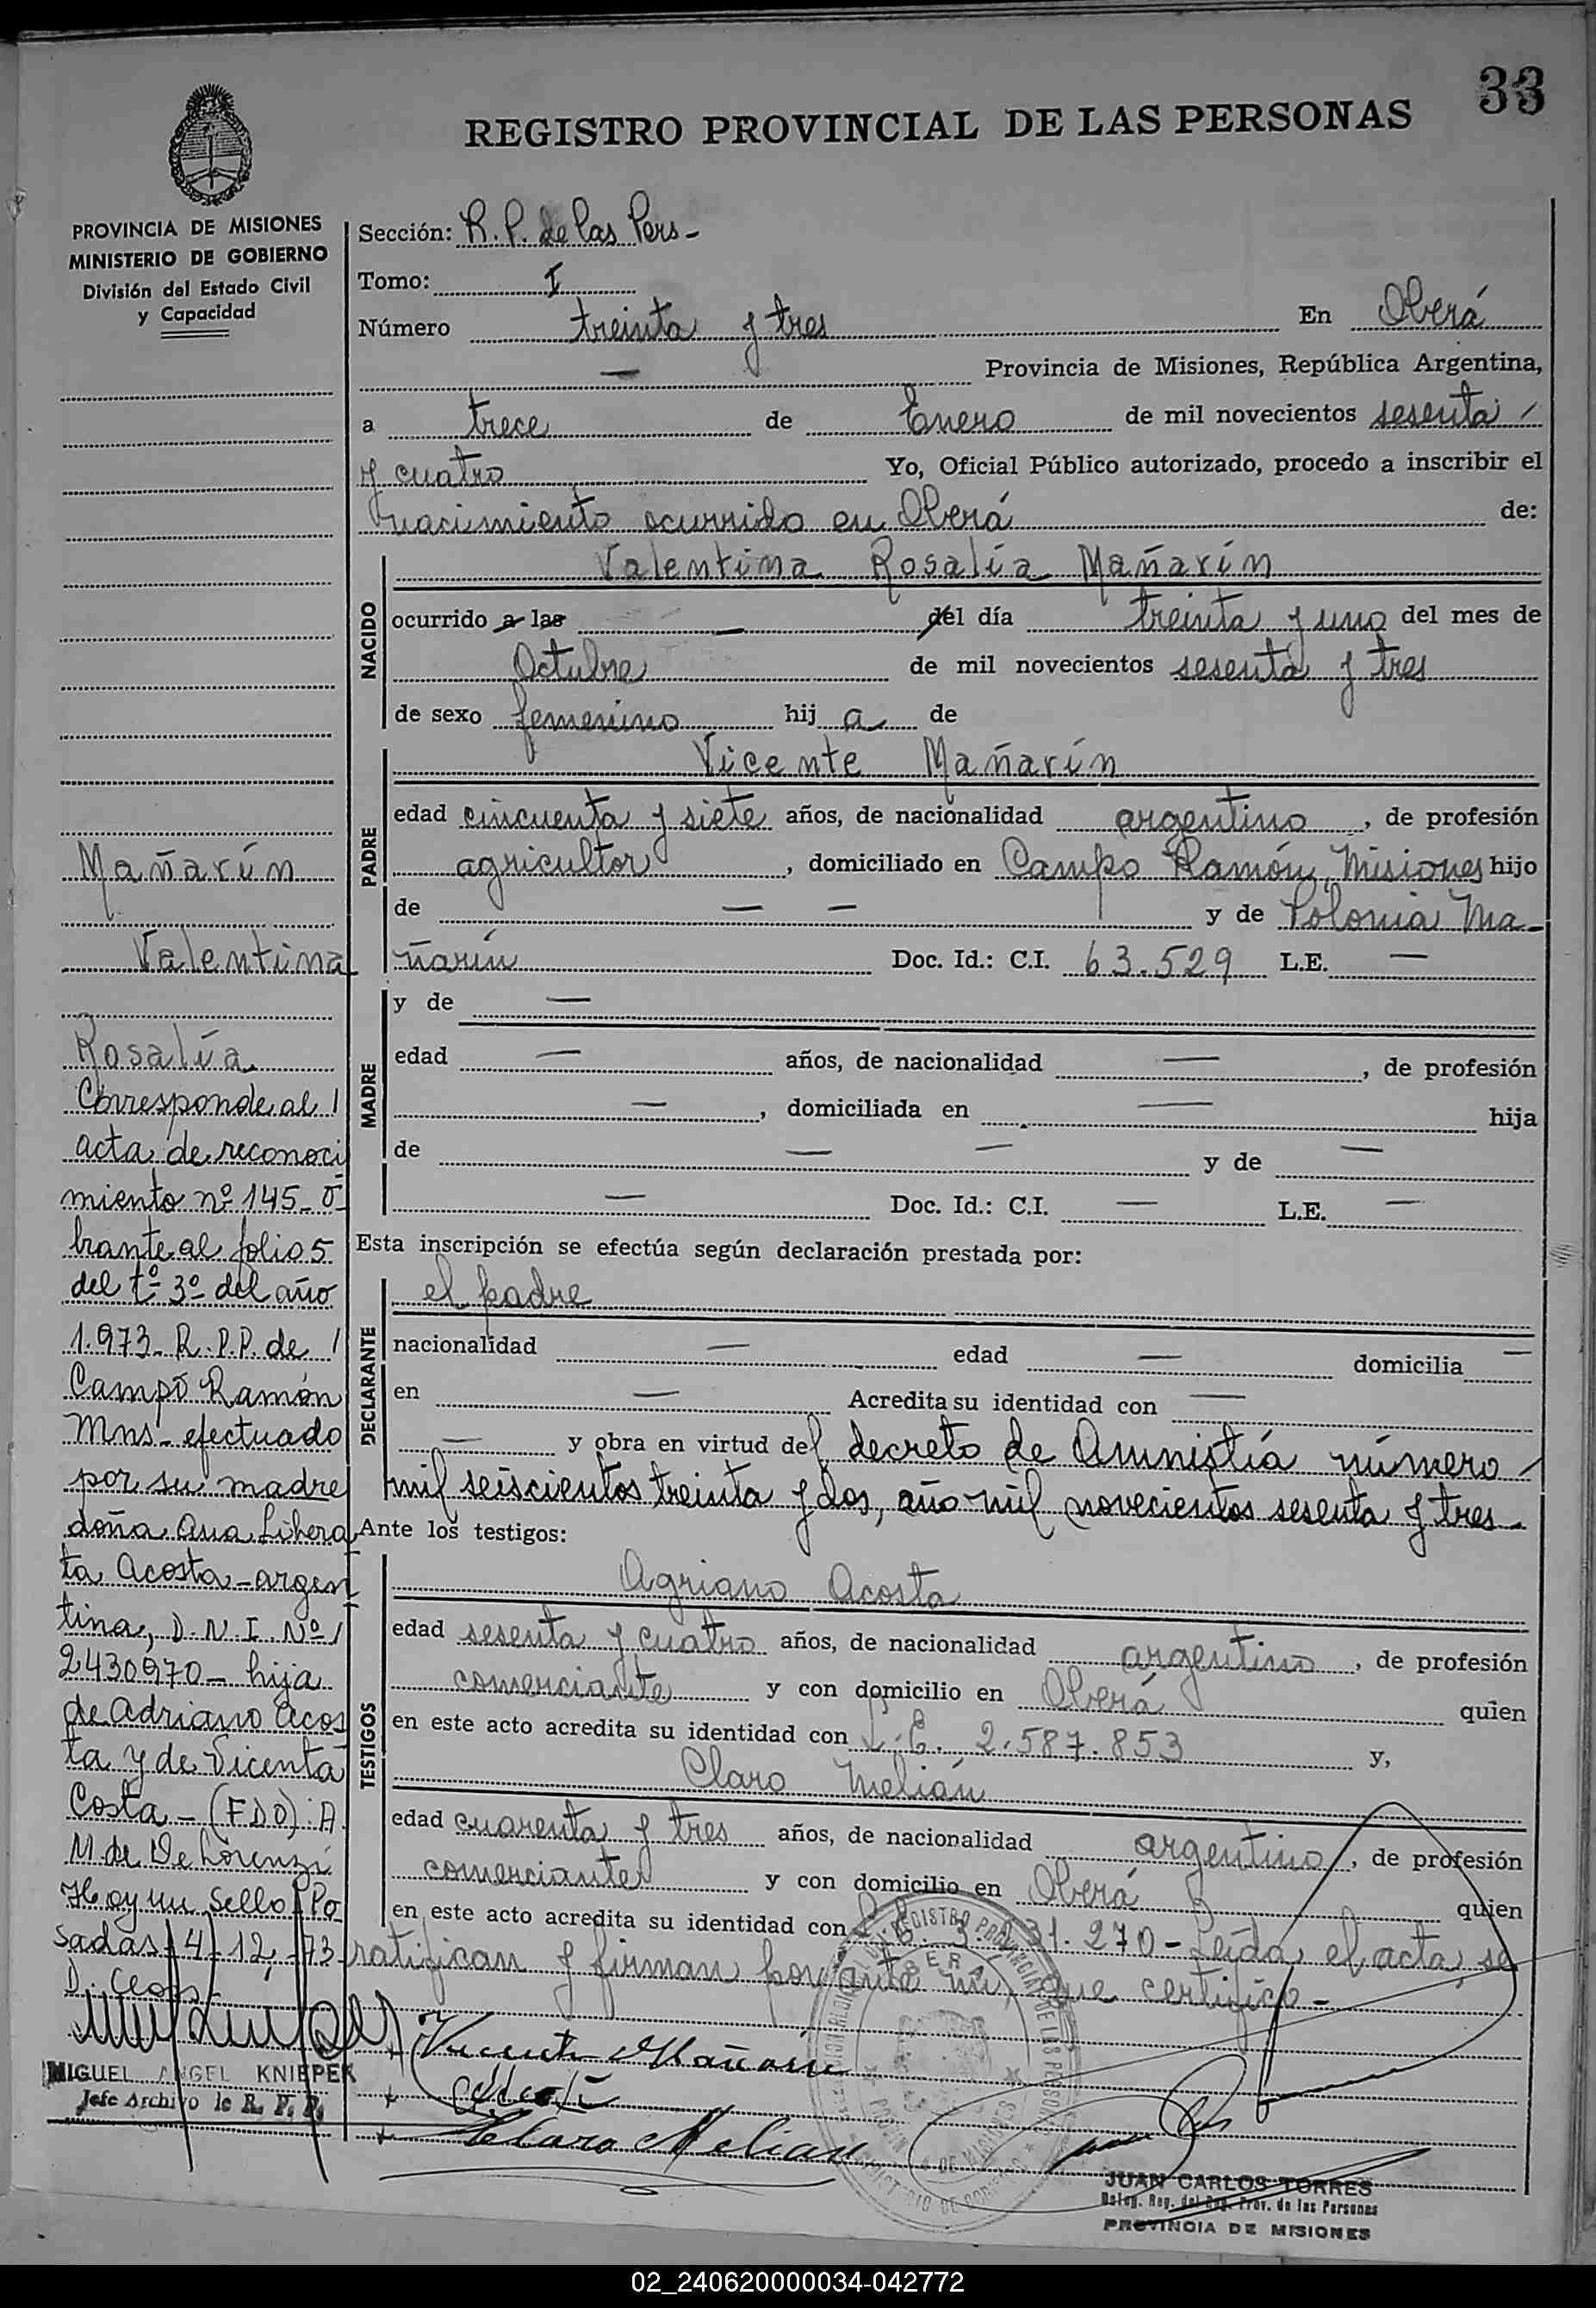 33
REGISTRO PROVINCIAL DE LAS PERSONAS
PROVINCIA DE MISIONES
MINISTERIO DE GOBIERNO
División del Estado Civil
y Capacidad
Sección: R. P. de las Pers-
Tomo: I
Número treinta y tres En Oberá
— Provincia de Misiones, República Argentina,
a trece de Enero de mil novecientos sesenta /
y cuatro Yo, Oficial Público autorizado, procedo a inscribir el
nacimiento ocurrido en Oberá de:
NACIDO
Valentina Rosalía Mañarín
ocurrido a las — del día treinta y uno del mes de
Octubre de mil novecientos sesenta y tres
de sexo femenino hij a de
PADRE
Vicente Mañarín
edad cincuenta y siete años, de nacionalidad argentino, de profesión
agricultor, domiciliado en Campo Ramón, Misiones hijo
de — — y de Polonia Ma-
ñarín Doc. Id.: C.I. 63.529 L.E. —
MADRE
y de —
edad — años, de nacionalidad —, de profesión
—, domiciliada en — hija
de — — y de —
— Doc. Id.: C.I. — L.E. —
Esta inscripción se efectúa según declaración prestada por:
DECLARANTE
el padre
nacionalidad — edad — domicilia —
en — Acredita su identidad con —
— y obra en virtud del decreto de Amnistía número /
mil seiscientos treinta y dos, año mil novecientos sesenta y tres.
Ante los testigos:
TESTIGOS
Agriano Acosta
edad sesenta y cuatro años, de nacionalidad argentino, de profesión
comerciante y con domicilio en Oberá quien
en este acto acredita su identidad con L.E. 2.587.853 y,
Claro Melián
edad cuarenta y tres años, de nacionalidad argentino, de profesión
comerciante y con domicilio en Oberá quien
en este acto acredita su identidad con 31.270- Leída el acta, se
ratifican y firman por ante mi, que certifico-
Vicente Mañarin
Claro Melian
JUAN CARLOS TORRES
Deleg. Reg. del Reg. Prov. de las Personas
PROVINCIA DE MISIONES
Mañarín
Valentina
Rosalía
Corresponde al /
acta de reconoci
miento nº 145- o-
brante al folio 5
del tº 3º del año
1.973- R.P.P. de /
Campo Ramón
Mns- efectuado
por su madre
doña Ana Libera
ta Acosta-argen
tina, D.N.I. Nº /
2430970- hija
de Adriano Acos
ta y de Vicenta
Costa- (FDO): A.
M. de De Lorenzi
Hoy un Sello Po
sadas 4-12-73
MIGUEL ANGEL KNIEPEK
Jefe Archivo de R. P. P.
02_240620000034-042772